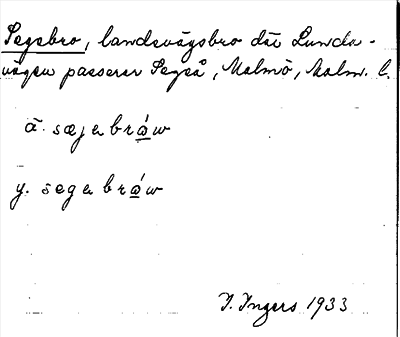 Segebro, landsvägsbro där Lunda-
vägen passerar Segeå, Malmö, Malm. l.
ä. sæjebráw
y. segebráw
I. Ingers 1933